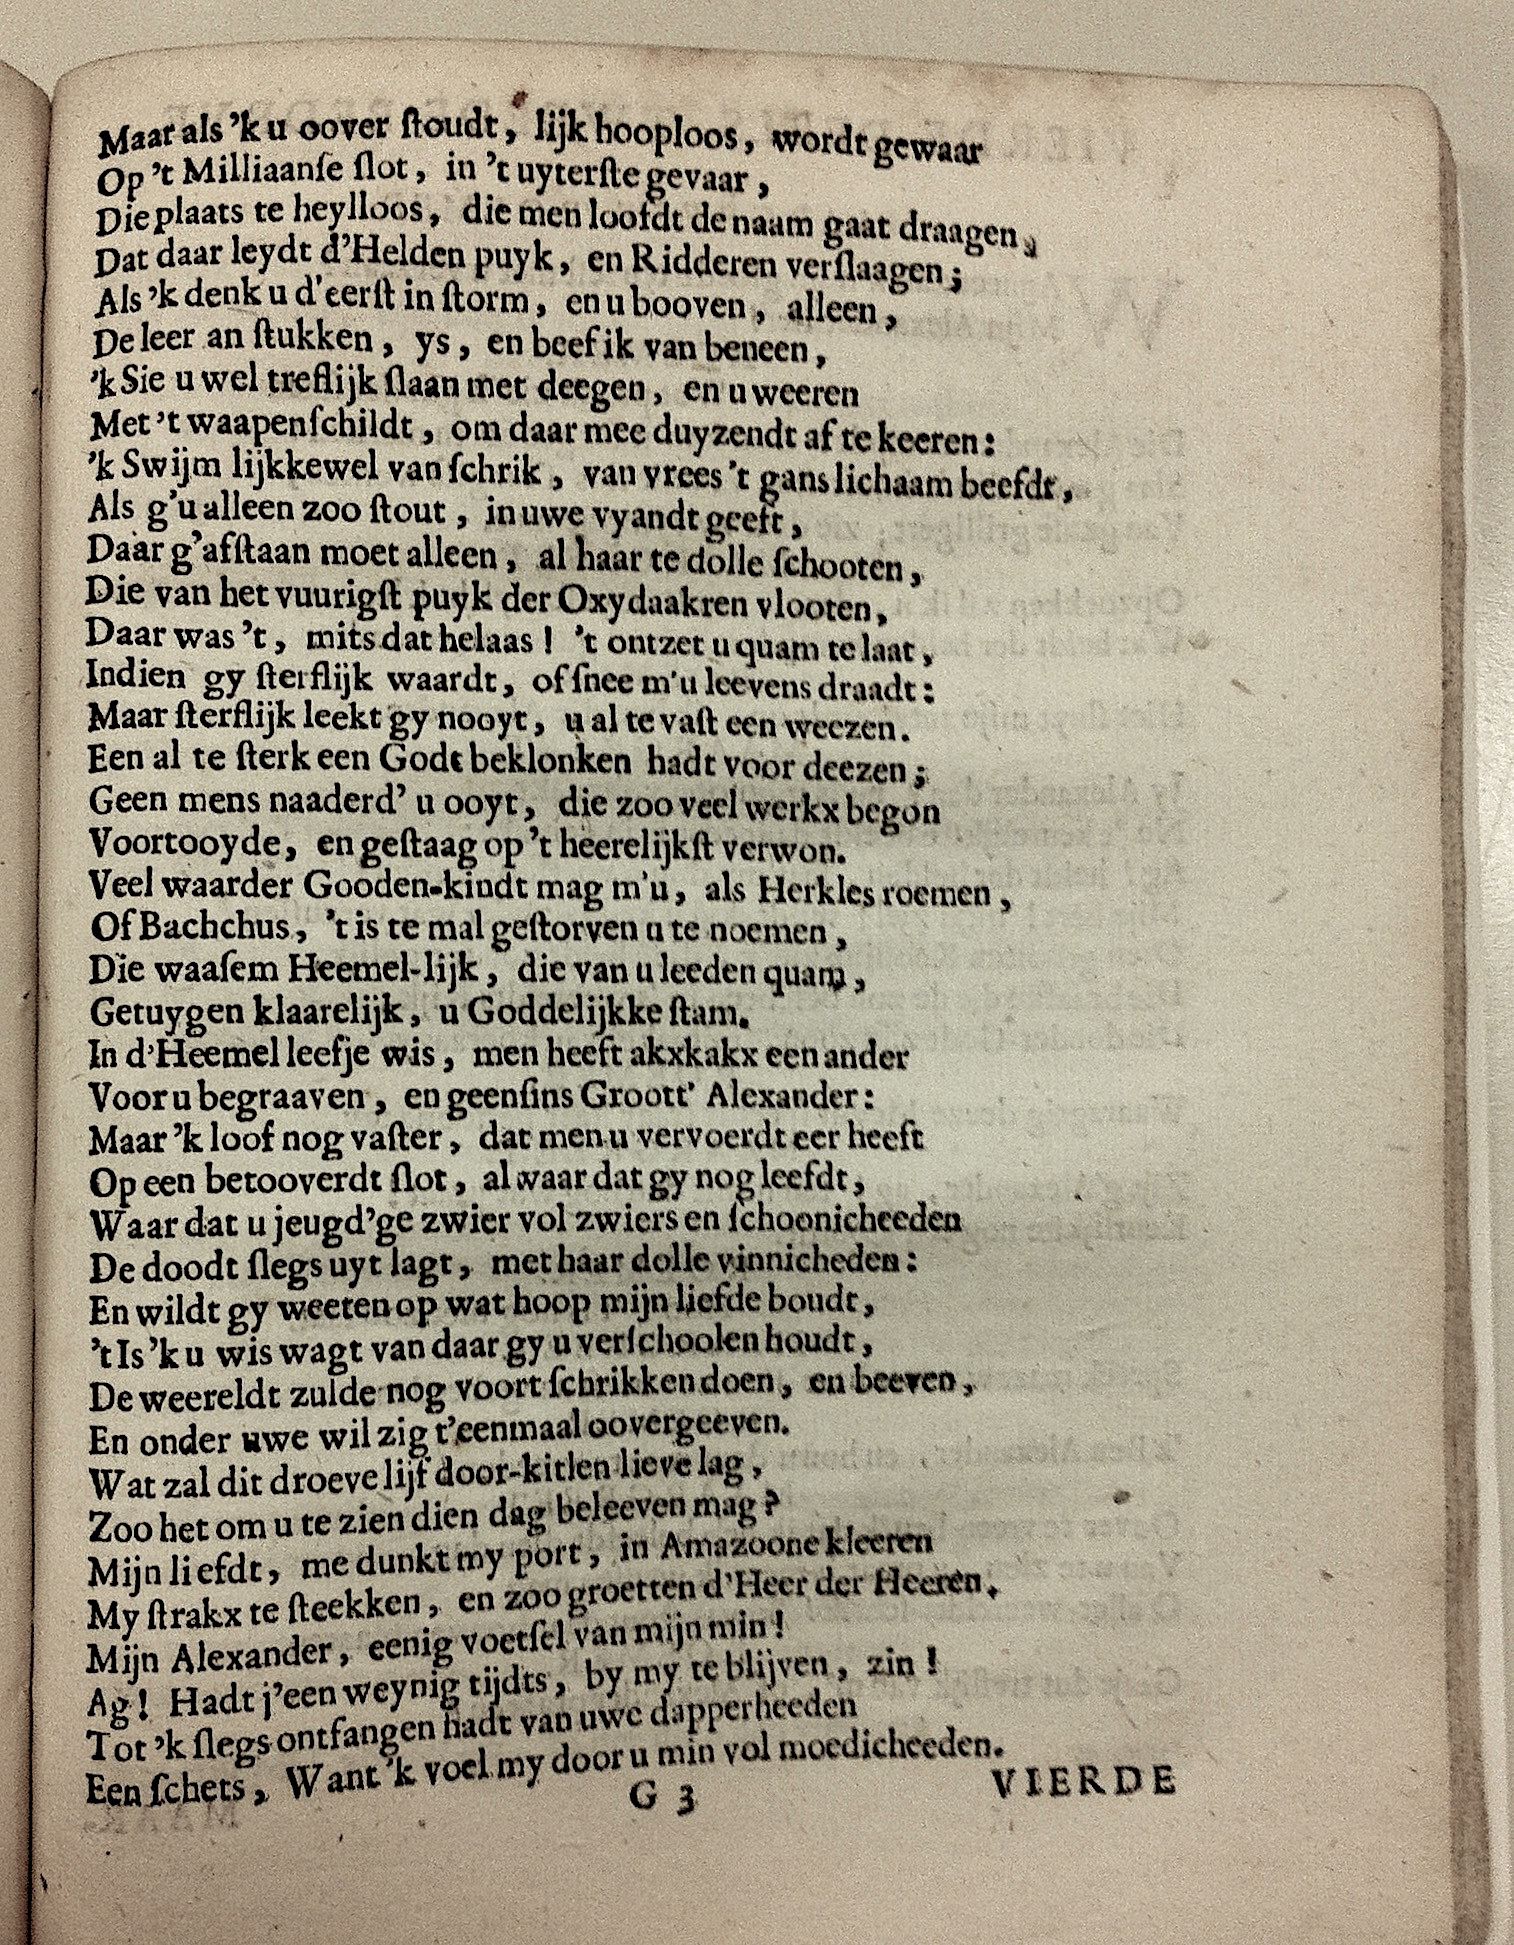 Maar als ’k u oover ſtoudt, lijk hooploos, wordt gewaar
Op ’t Milliaanſe ſlot, in ’t uyterſte gevaar,
Die plaats te heylloos, die men loofdt de naam gaat draagen,
Dat daar leydt d’Helden puyk, en Ridderen verſlaagen;
Als ’k denk u d’eerſt in ſtorm, en u booven, alleen,
De leer an ſtukken, ys, en beef ik van beneen,
’k Sie u wel treflijk ſlaan met deegen, en u weeren
Met ’t waapenſchildt, om daar mee duyzendt af te keeren:
’k Swijm lijkkewel van ſchrik, van vrees ’t gans lichaam beefdt,
Als g’u alleen zoo ſtout, in uwe vyandt geeft,
Daar g’afſtaan moet alleen, al haar te dolle ſchooten,
Die van het vuurigſt puyk der Oxydaakren vlooten,
Daar was ’t, mits dat helaas! ’t ontzet u quam te laat,
Indien gy ſterflijk waardt, of ſnee m’u leevens draadt:
Maar ſterflijk leekt gy nooyt, u al te vaſt een weezen.
Een al te ſterk een Godt beklonken hadt voor deezen;
Geen mens naaderd’ u ooyt, die zoo veel werkx begon
Voortooyde, en geſtaag op ’t heerelijkſt verwon.
Veel waarder Gooden-kindt mag m’u, als Herkles roemen,
Of Bachchus, ’t is te mal geſtorven u te noemen,
Die waaſem Heemel-lijk, die van u leeden quam,
Getuygen klaarelijk, u Goddelijkke ſtam.
In d’Heemel leefje wis, men heeft akxkakx een ander
Voor u begraaven, en geenſins Groott’ Alexander:
Maar ’k loof nog vaſter, dat men u vervoerdt eer heeft
Op een betooverdt ſlot, alwaar dat gy nog leefdt,
Waar dat u jeugd’ge zwier vol zwiers en ſchoonicheeden
De doodt ſlegs uyt lagt, met haar dolle vinnicheden:
En wildt gy weeten op wat hoop mijn liefde boudt,
’t Is ’k u wis wagt van daar gy u verſchoolen houdt,
De weereldt zulde nog voort ſchrikken doen, en beeven,
En onder uwe wil zig t’eenmaal oovergeeven.
Wat zal dit droeve lijf door-kitlen lieve lag,
Zoo het om u te zien dien dag beleeven mag?
Mijn liefdt, me dunkt my port, in Amazoone kleeren
My ſtrakx te ſteekken, en zoo groetten d’Heer der Heeren.
Mijn Alexander, eenig voetſel van mijn min!
Ag! Hadt j’een weynig tijdts, by my te blijven, zin!
Tot ’k ſlegs ontfangen hadt van uwe dapperheeden
Een ſchets, Want ’k voel my door u min vol moedicheeden.
G 3 VIERDE